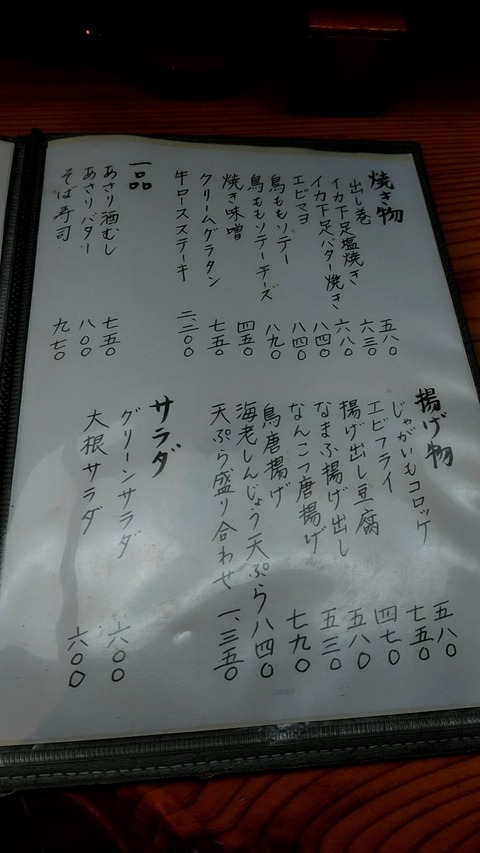 焼き物
出し巻 五八〇
イカ下足塩焼き 六三〇
イカ下足バター焼き 六八〇
エビマヨ 八四〇
鳥ももソテー 八四〇
鳥ももソテーチーズ 八九〇
焼き味噌 四五〇
クリームグラタン 七五〇
牛ロースステーキ 二、二〇〇
一品
あさり酒むし 七五〇
あさりバター 八〇〇
そば寿司 九七〇
揚げ物
じゃがいもコロッケ 五八〇
エビフライ 七五〇
揚げ出し豆腐 四七〇
なまふ揚げ出し 五八〇
なんこつ唐揚げ 五三〇
鳥唐揚げ 七九〇
海老しんじょう天ぷら 八四〇
天ぷら盛り合わせ 一、三五〇
サラダ
グリーンサラダ 六〇〇
大根サラダ 六〇〇